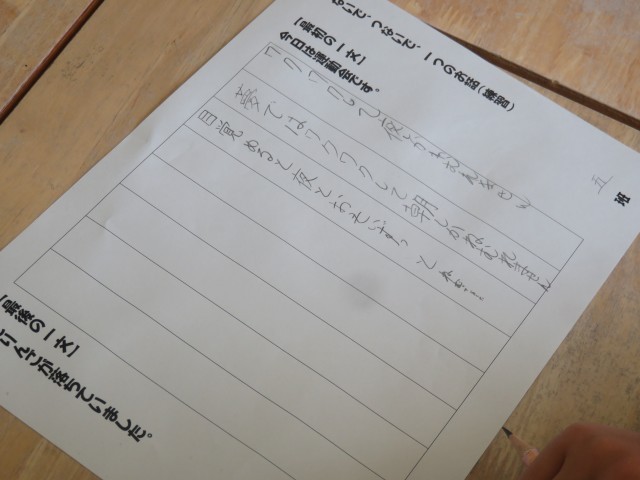 ないで、つないで、一つのお話(練習)
五 班
「最初の一文」
今日は運動会です。
ワクワクして夜しかねむれません
夢ではワクワクして朝しかねむれません
目覚めると夜と
「最後の一文」
けんさが落ちていました。